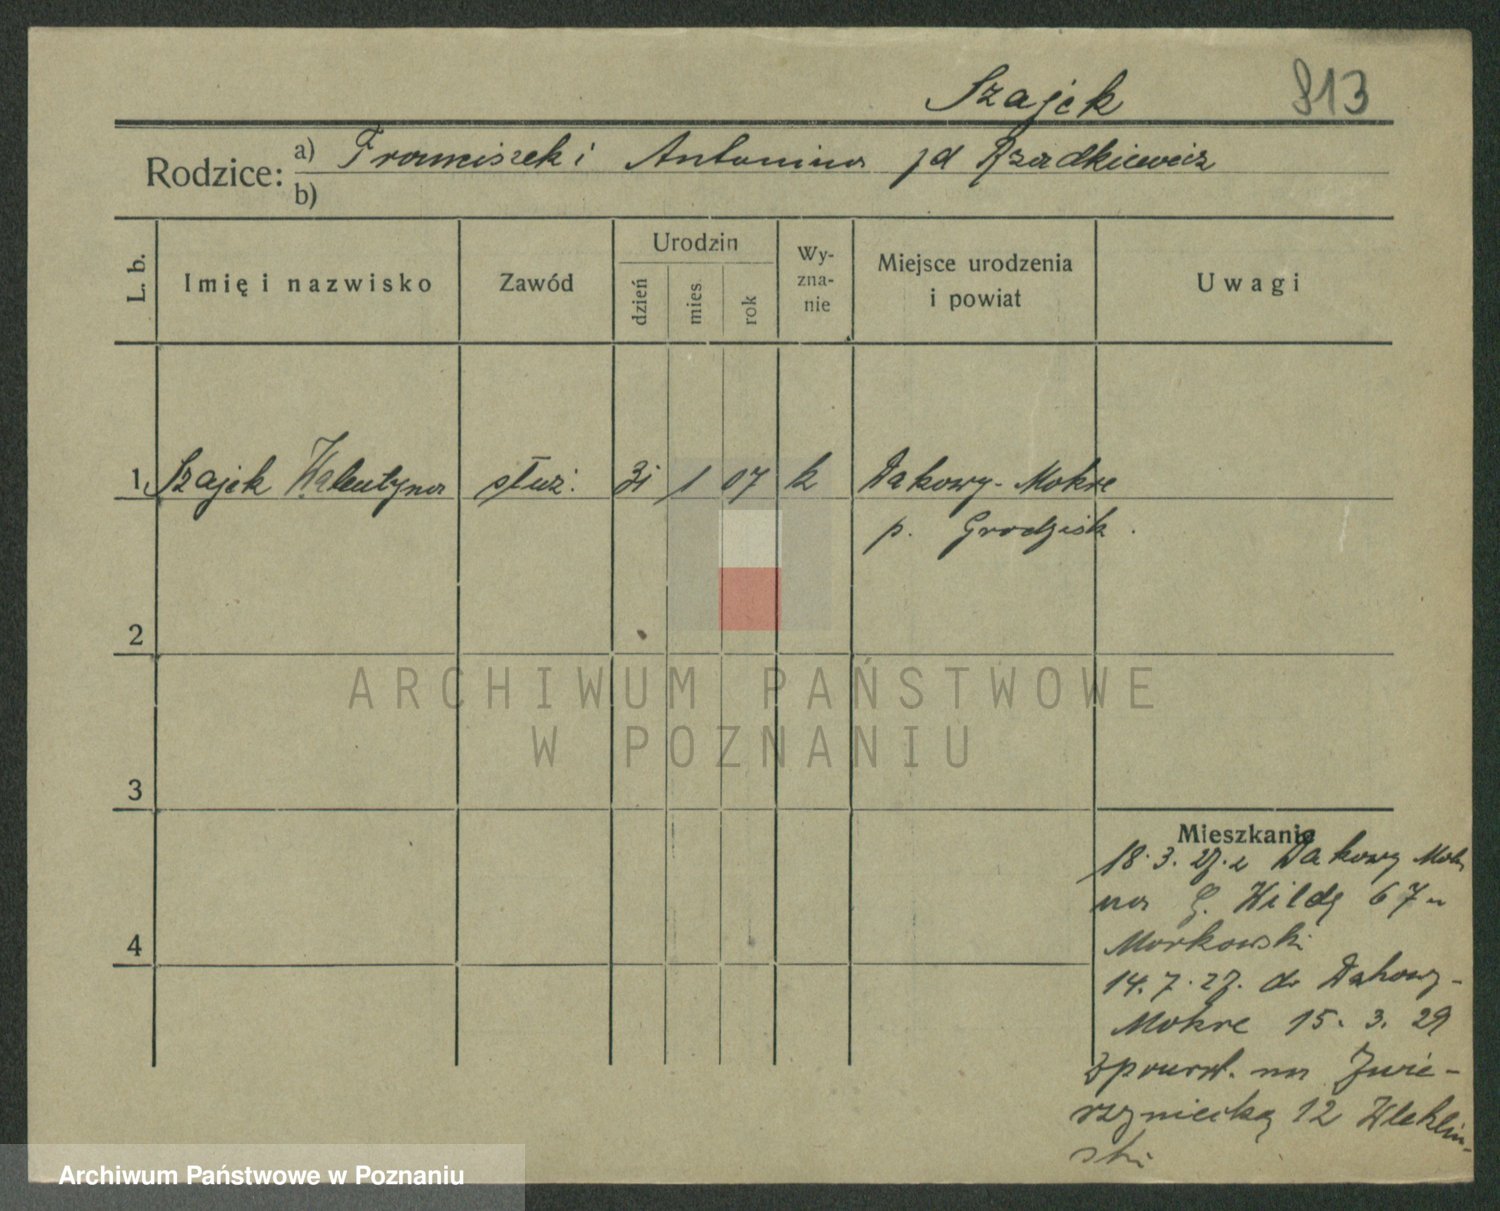 Szajek 813
Rodzice: a) Franciszek i Antonina zd Rzadkiewicz
b)
L. b. Imię i nazwisko Zawód Urodzin dzień mies rok Wy-zna-nie Miejsce urodzenia i powiat Uwagi
1 Szajek Walentyna służ. 31 1 07 k Dakowy-Mokre
p. Grodzisk.
2
ARCHIWUM PAŃSTWOWE
W POZNANIU
3
Mieszkanie
18.3.27. z Dakowy Mok
na G. Wildę 67 u
Morkowski
14.7.27. do Dakowy-
Mokre 15.3.29
4
zpowr. na Zwie-
rzyniecką 12
ski
Archiwum Państwowe w Poznaniu